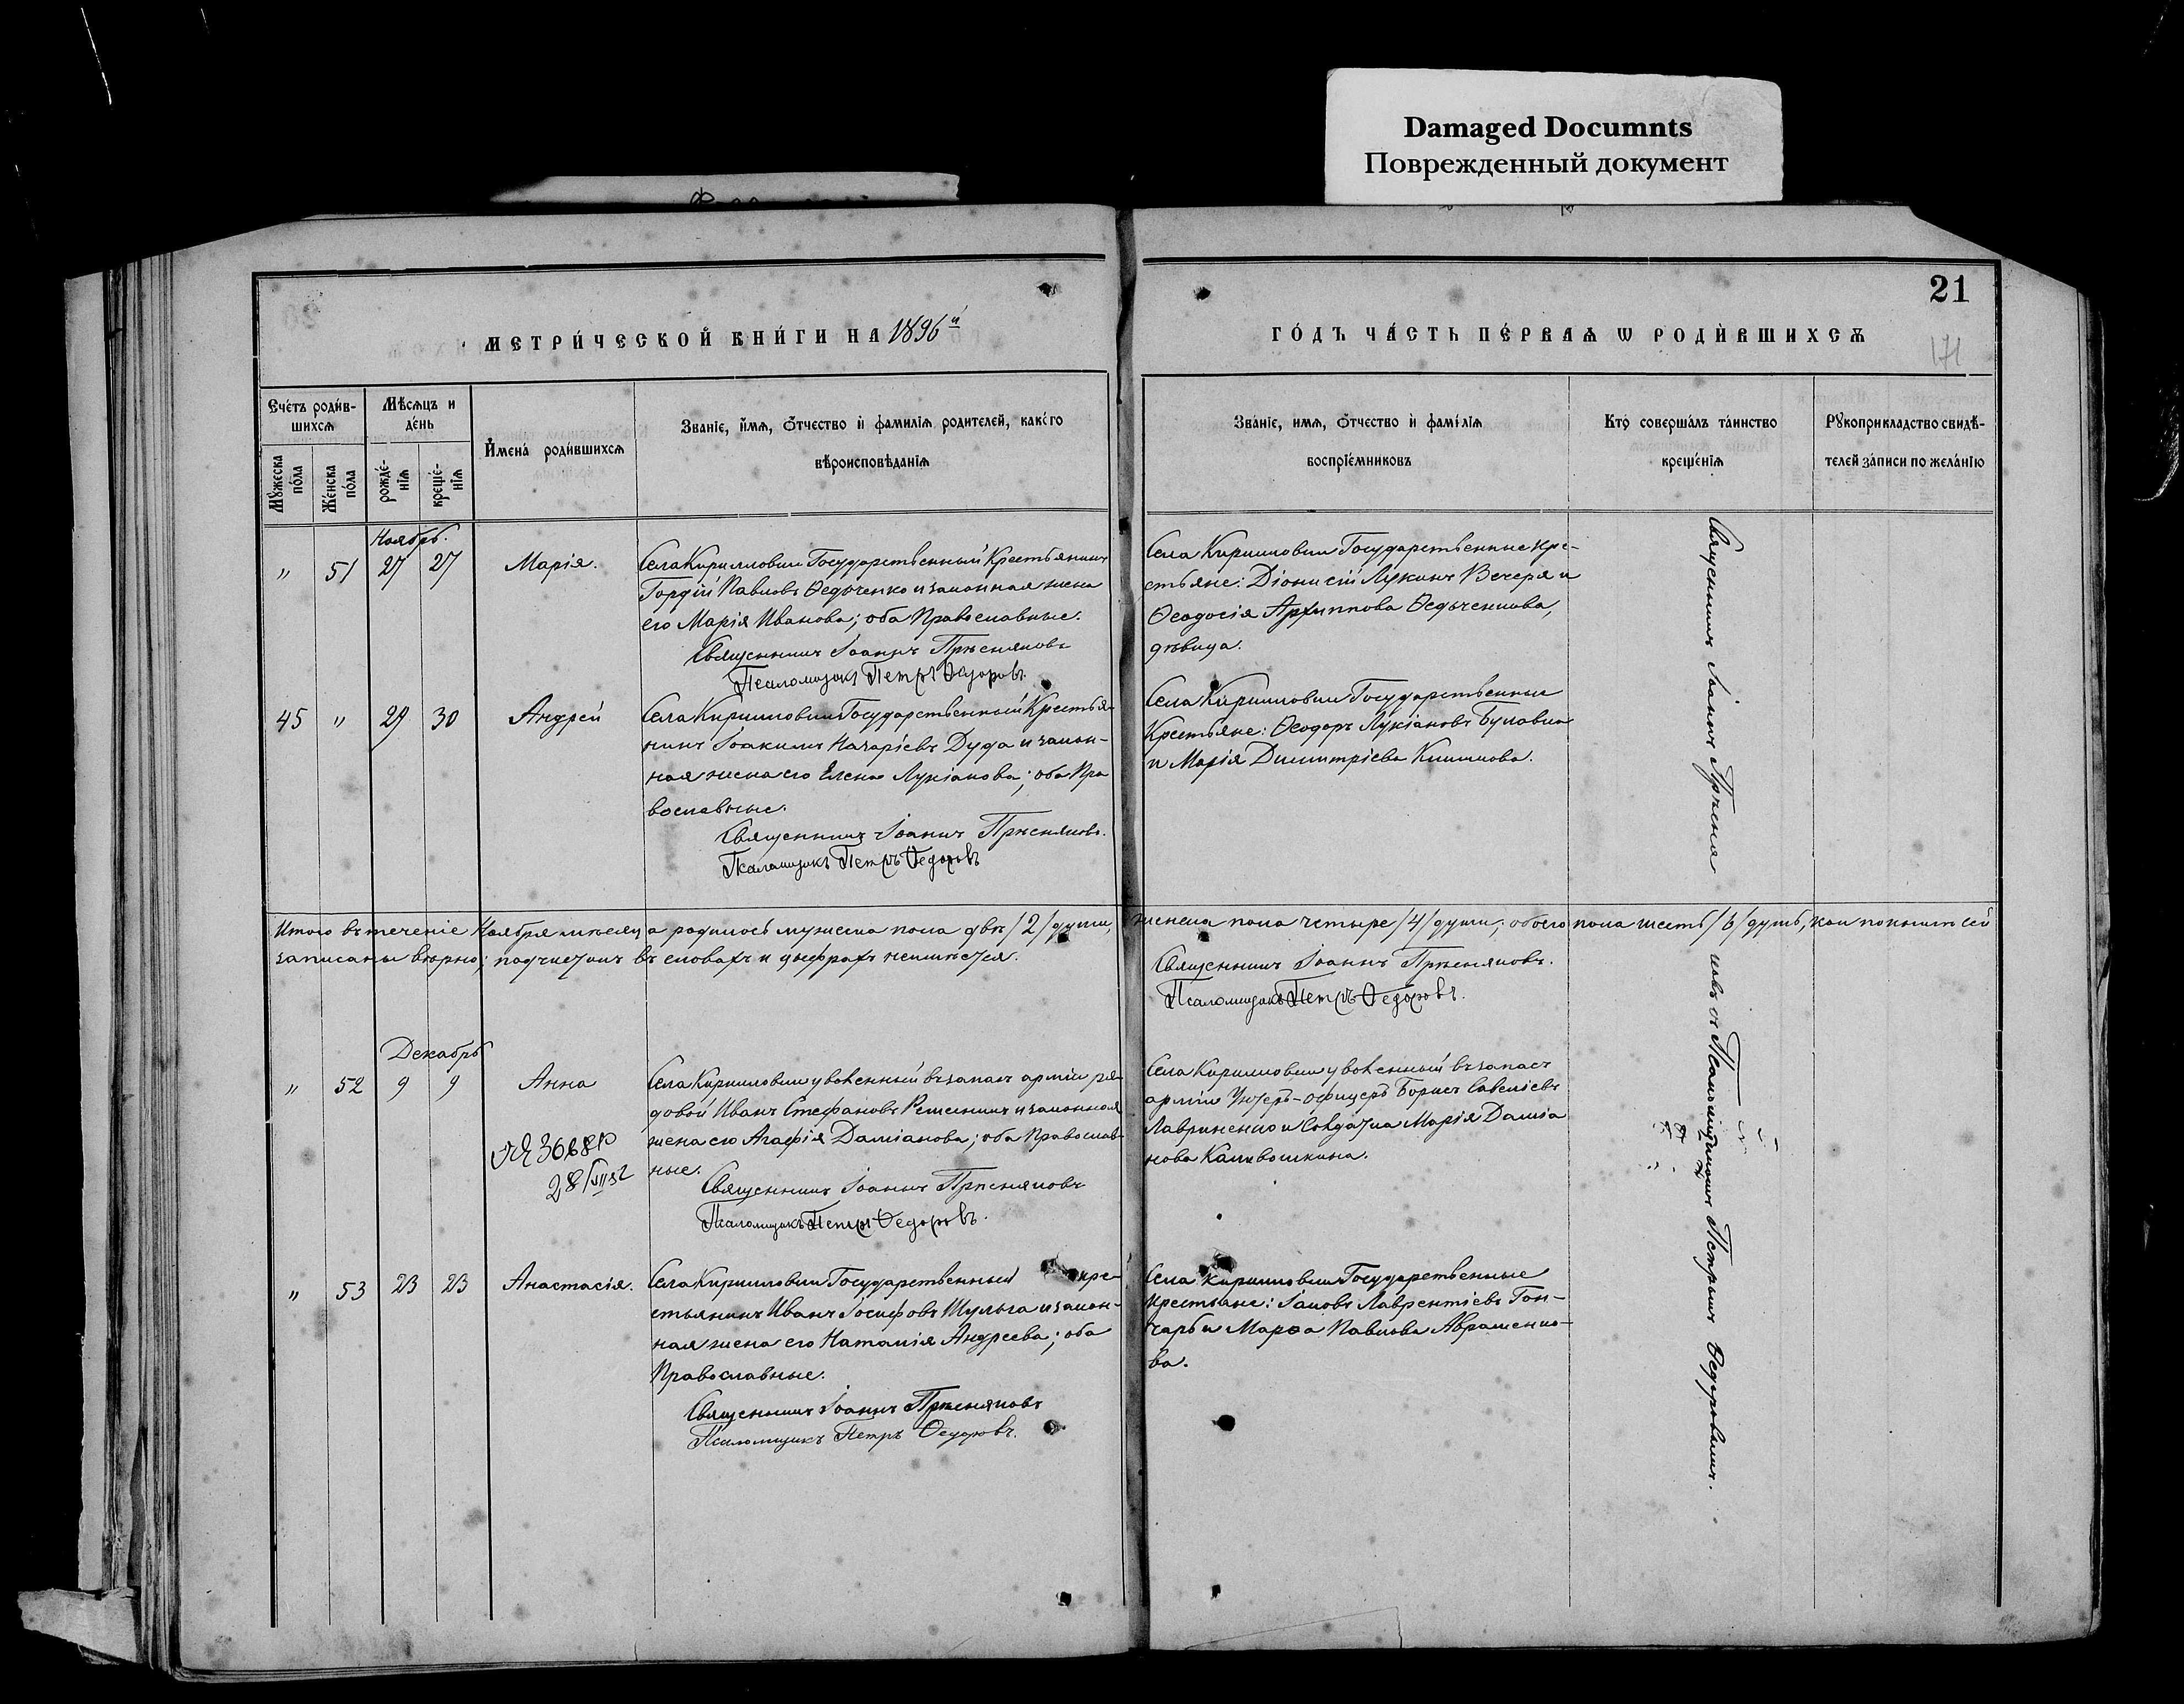 Damaged Documnts
Поврежденный документ
21
171
МЕТРИ́ЧЕСКОЙ КНИ́ГИ НА 1896й
ГО́ДЪ ЧА́СТЬ ПЕ́РВАѦ Ѡ РОДИ́ВШИХСѦ
Счéтъ роди́в-
шихсѧ
Мѣ́сѧцъ и
дéнь
И҆менà роди́вшихсѧ
Звáніе, и҆́мѧ, ѻ҆́тчество и҆ фамилїѧ родителей, какóго
вѣроисповѣданїѧ
Звáніе, имѧ, ѻ҆́тчество и҆ фамíлїѧ
воспрїéмниковъ
Ктò совершáлъ тáинство
крещéнїѧ
Рꙋкоприкладство свидѣ́-
телей зáписи по желáнїю
Мꙋ́жеска
пóла
Жéнска
пóла
рождé-
нїѧ
крещé-
нїѧ
Ноябрь.
" 51 27 27 Марія.
Села Кирилловки Государственный Крестьянинъ
Гордій Павловъ Ѳедченко и законная жена
его Марія Иванова; оба Православные.
Священникъ Іоаннъ Прѣсняковъ
Псаломщикъ Петръ Ѳедоровъ
Села Кирилловки Государственные кре-
стьяне: Діонисій Лукинъ Вечеря и
Ѳеодосія Архиппова Ѳедченкова,
дѣвица.
45 " 29 30 Андрей
Села Кирилловки Государственный Крестья-
нинъ Іоакимъ Назаріевъ Дуда и закон-
ная жена его Елена Лукіанова; оба Пра
вославные.
Священникъ Іоаннъ Прѣсняковъ.
Псаломщикъ Петръ Ѳедоровъ
Села Кирилловки Государственные
Крестьяне: Ѳеодоръ Лукіановъ Булавка
и Марія Димитріева Климова.
Итого въ теченіе Ноября мѣсяца родилось мужеска пола двѣ /2/ души, женска пола четыре /4/ души; обоего пола шесть /6/ душъ, кои по книгѣ сей
записаны вѣрно; подчистки въ словахъ и цыфрахъ неимѣется.
Священникъ Іоаннъ Прѣсняковъ.
Псаломщикъ Петръ Ѳедоровъ.
Декабрь
" 52 9 9 Анна
28/VII
Села Кирилловки уволенный въ запасъ арміи ря-
довой Иванъ Стефановъ Решетникъ и законная
жена его Агафія Даміанова; оба Православ-
ные.
Священникъ Іоаннъ Прѣсняковъ
Псаломщикъ Петръ Ѳедоровъ.
Села Кирилловки уволенный въ запасъ
арміи Унтеръ-офицеръ Борисъ Савеліевъ
Лавриненко и Солдатка Марія Даміа
нова Каливошкина.
" 53 23 23 Анастасія.
Села Кирилловки Государственный кре-
стьянинъ Иванъ Іосифовъ Шульга и закон-
ная жена его Наталія Андреева; оба
Православные.
Священникъ Іоаннъ Прѣсняковъ
Псаломщикъ Петръ Ѳедоровъ.
Села Кирилловки Государственные
крестьяне: Іаковъ Лаврентіевъ Гон-
чаръ и Марѳа Павлова Авраменко-
ва.
Священникъ Іоаннъ Прѣсня ковъ съ Псаломщикомъ Петромъ Ѳедоровымъ.